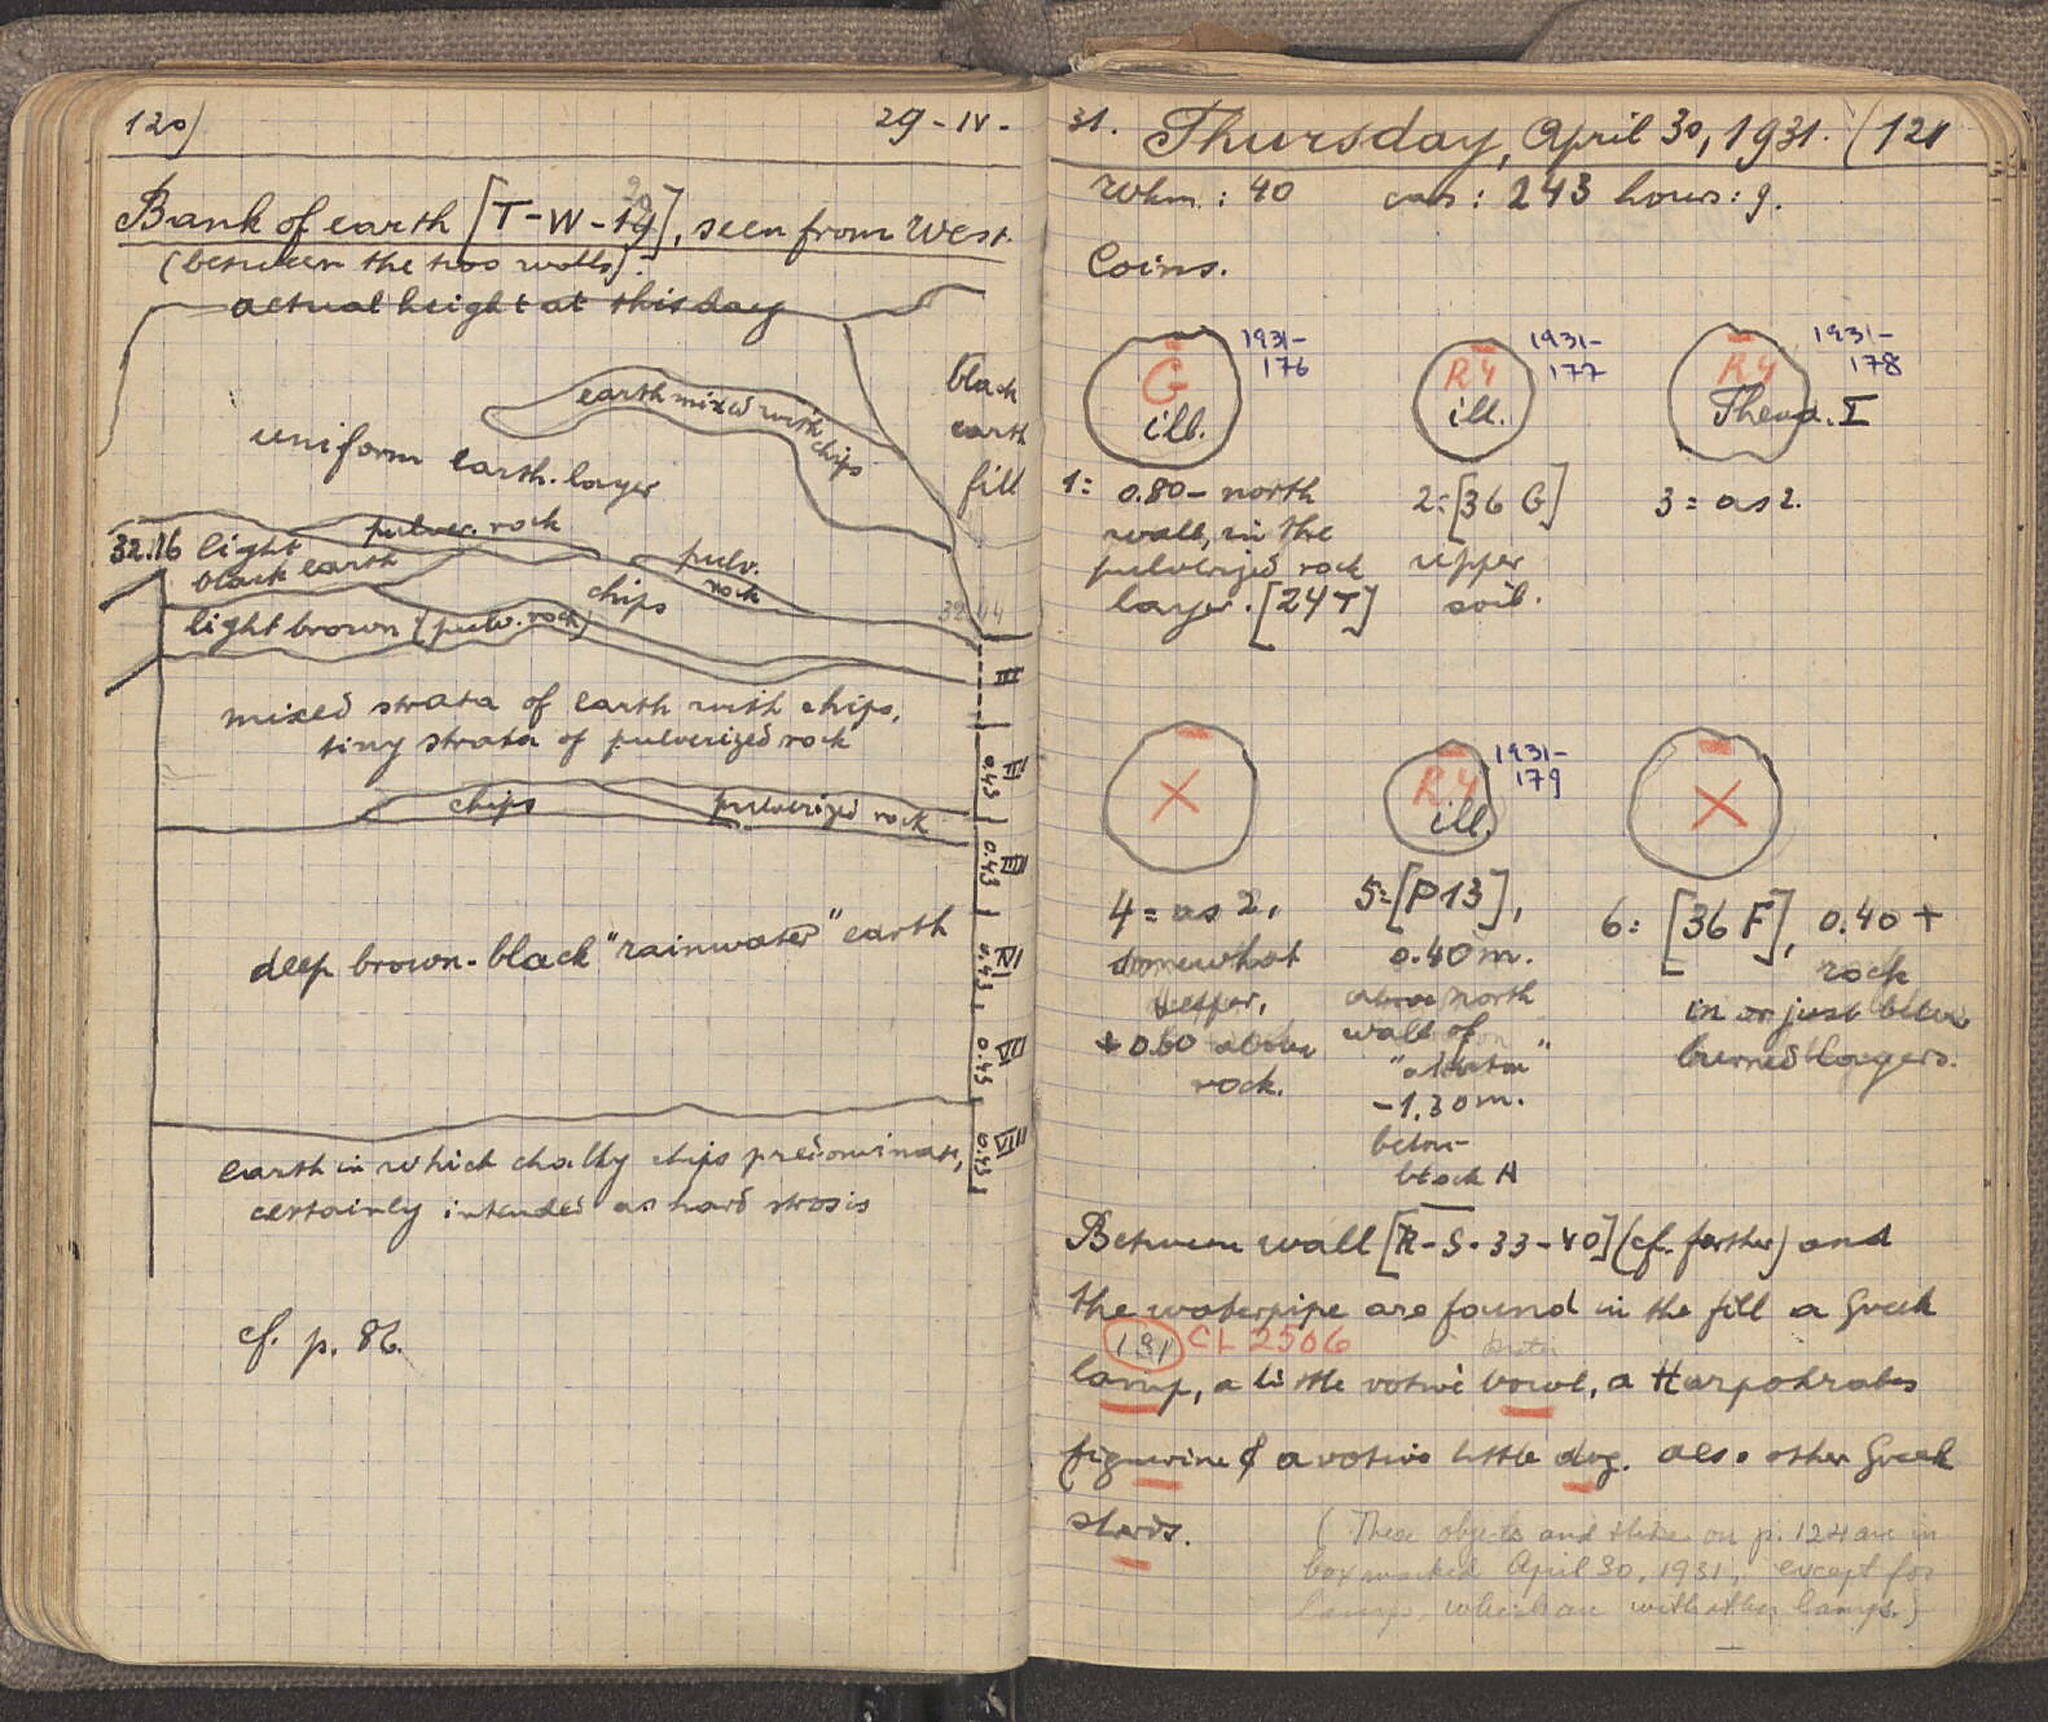 120)
29-IV-
Bank of earth [T-W-19], seen from West.
20
(between the two walls).
actual height at this day
black
earth
fill
earth mixed with
chips
uniform earth-layer
pulver. rock
32.16 light
black earth
pulv.
rock
chips
32.44
light brown (pulv. rock)
III
mixed strata of earth with chips,
tiny strata of pulverized rock
0.43
chips
pulverized rock
0.43
IIII
deep brown-black "rainwater" earth
0.43
0.43
VII
0.43
VIII
earth in which chalky chips predominate,
certainly intended as hard strosis
cf. p. 86.
31. Thursday, April 30, 1931. (121
Wkm.: 40 cars: 243 hours: 9.
Coins.
G
ill.
1931-
176
R4
ill.
1931-
177
R4
Theod. I
1931-
178
1= 0.80 - north
wall, in the
pulverized rock
layer. [24T]
2=[36 G]
upper
soil.
3= as 2.
X
R4
ill.
1931-
179
X
4= as 2,
somewhat
+0.60 above
rock.
5=[P13],
0.40m.
above north
wall of
-1.30m.
below
block H
6= [36 F], 0.40 +
rock
in or just below
burned layers.
Between wall [R-S-33-40] (cf. farther) and
the waterpipe are found in the fill a Greek
131 CL 2506
lamp, a little votive bowl, a Harpokrates
figurine & a votive little dog. Also other Greek
sherds.
(These objects and those on p. 124 are in
box marked April 30, 1931, except for
lamps, which are with other lamps.)